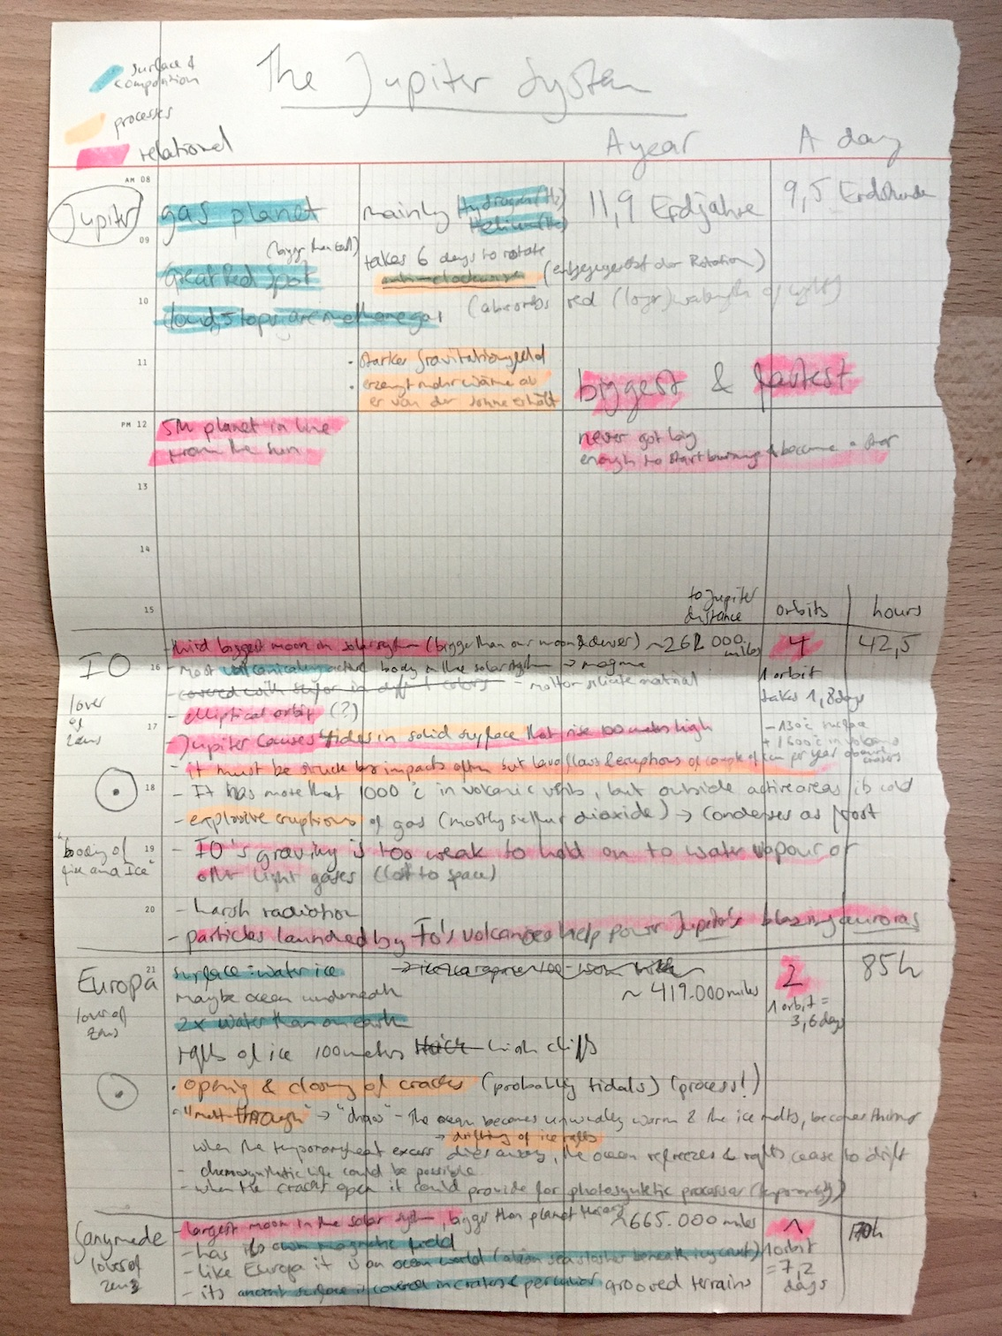 surface &
composition
processes
relational
The Jupiter System
A year
A day
AM 08
Jupiter
gas planet
mainly Hydrogen (H₂)
Helium (He)
11,9 Erdjahre
9,5 Erdstunden
09
(bigger than earth)
Great Red Spot
takes 6 days to rotate
anti-clockwise (entgegengesetzt der Rotation)
10
cloud's tops are methane gas
(absorbs red (longer) wavelength of light)
11
- starker Gravitationsfeld
- erzeugt mehr wärme als
er von der Sonne erhält
biggest & fastest
PM 12
5th planet in line
from the sun
never got big
enough to start burning & become a star
13
14
15
to Jupiter
distance
orbits
hours
IO
third biggest moon in solar system (bigger than our moon & denser)
~262 000 miles
4
42,5
16
- Most volcanically active body in the solar system → magma
- covered with sulfor in diff. colors
- molten silicate material
1 orbit
takes 1,8 days
lover
of
zeus
- elliptical orbit (?)
17
- Jupiter causes tides in solid surface that rise 100 meters high
- -130°C surface
+ 1600°C in volcanos
- it must be struck by impacts often but lava flows & eruptions of couple of cm per year
18
- It has more that 1000°C in volcanic vents, but outside active areas it's cold
- explosive eruptions of gas (mostly sulfur dioxide) → condenses as frost
"body of
fire and ice"
19
- IO's graving is too weak to hold on to water vapour or
other light gases (lost to space)
20
- harsh radiation
- particles launched by Io's volcanoes help power Jupiter's blazing auroras
Europa
21
surface: water ice
maybe ocean underneath
~ 419.000 miles
2
85h
lover of
zeus
2x water than on earth
1 orbit =
3,6 days
rafts of ice 100 meters thick high cliffs
· opening & closing of cracks (probably tidals) (process!)
· "melt-through" → "chaos" - the ocean becomes unusually warm & the ice melts, becomes thinner
→ drifting of ice rafts
when the temporary heat excess dies away, the ocean refreezes & rafts cease to drift
- chemosynthetic life could be possible
- when the cracks open it could provide for photosynthetic processes (temporarily)
Ganymede
- largest moon in the solar system, bigger than planet Mercury
~ 665.000 miles
1
170h
- has its own magnetic field
lover of
zeus
- like Europa it is an ocean world (beneath icy crust)
1 orbit
= 7,2
days
- its ancient surface is covered in craters & peculiar grooved terrains